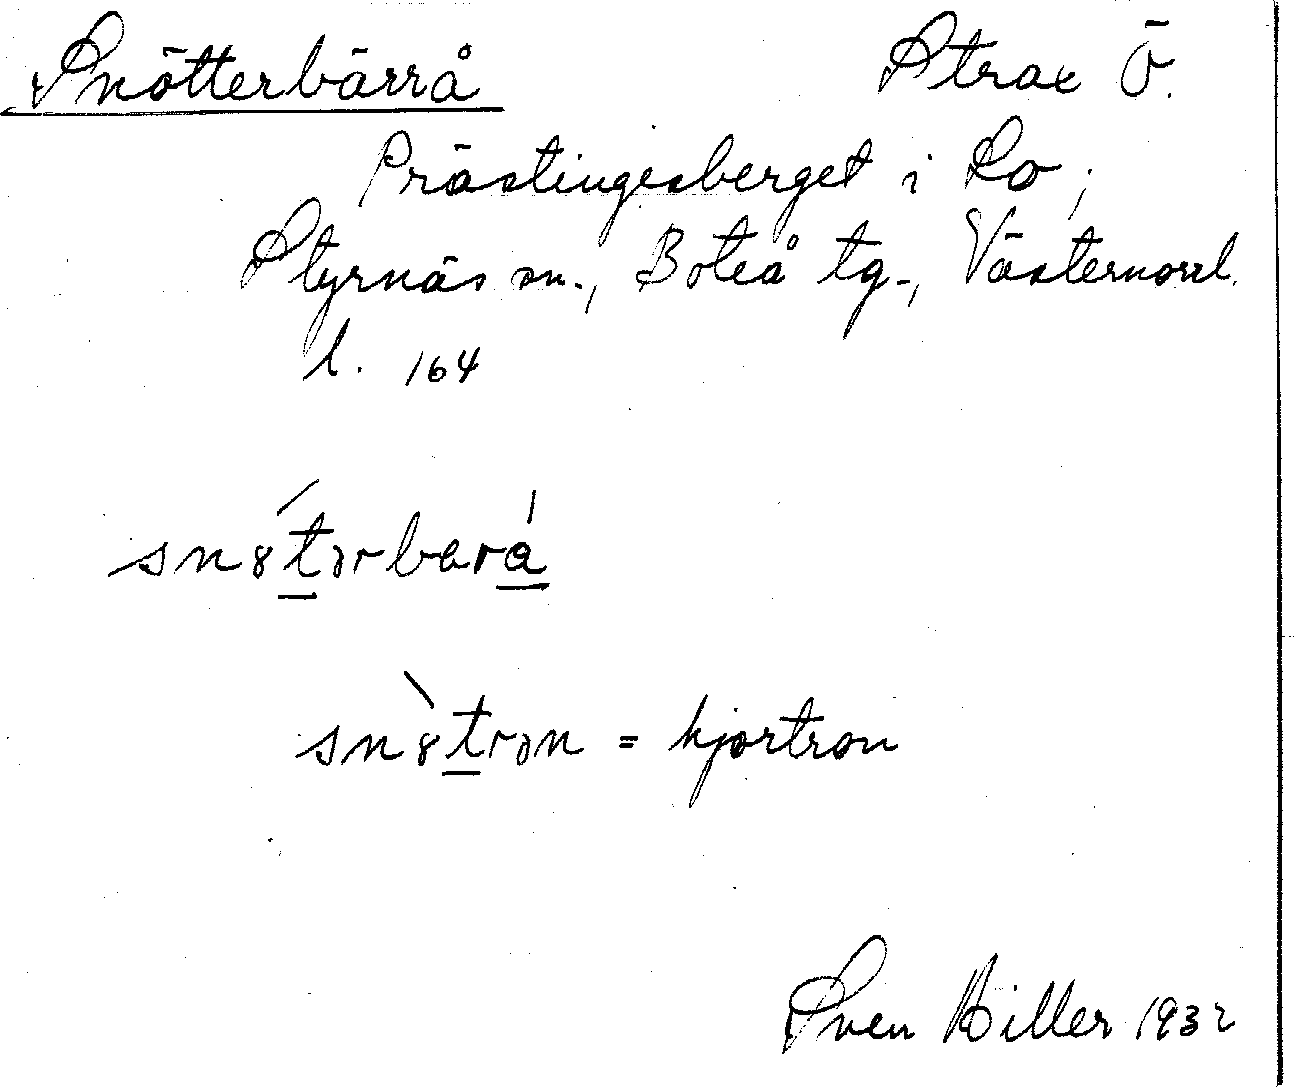 Snötterbärrå Strax Ö.
Prästingesberget i Lo,
Styrnäs sn., Boteå tg., Västernorrl.
l. 164
snȣ́tərbará
snȣ̀trən = hjortron
Sven Hiller 1932